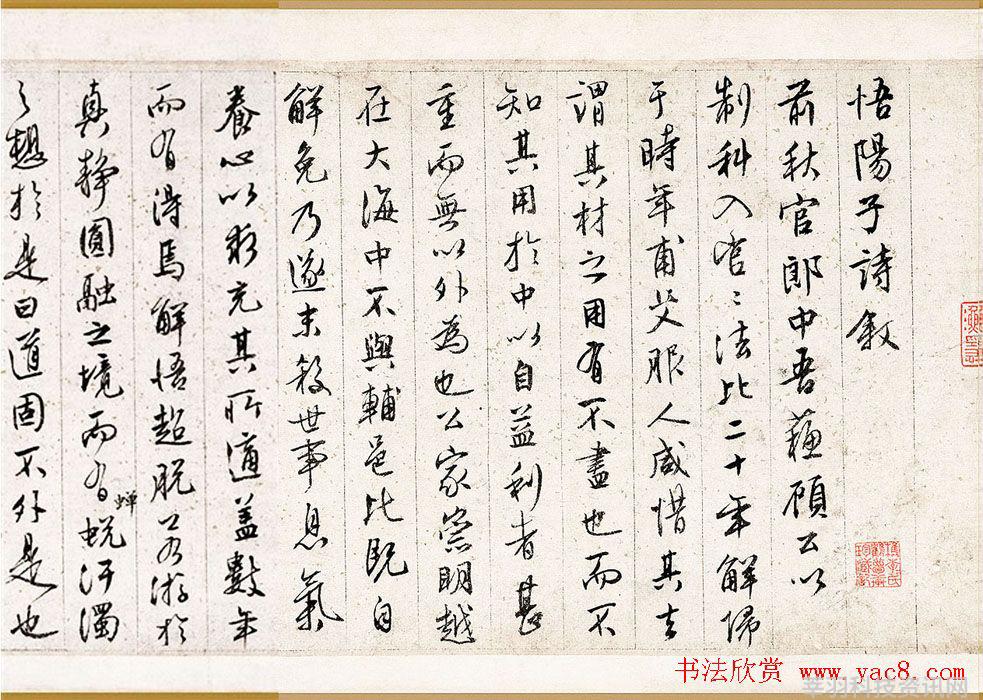 悟陽子詩敘
前秋官郎中吾蘓顧公以
制科入官〻法比二十年解歸
于時年甫艾服人咸惜其去
謂其材之用有不盡也而不
知其用於中以自益利者甚
重而無以外為也公家崇明越
在大海中不與輔邑比既自
解免乃遂末殺世事息氣
養心以務充其所適蓋數年
而有得焉解悟超脫若游於
真靜圓融之境而有蟬蛻汙濁
之想於是曰道固不外是也
书法欣赏 www.yac8.com